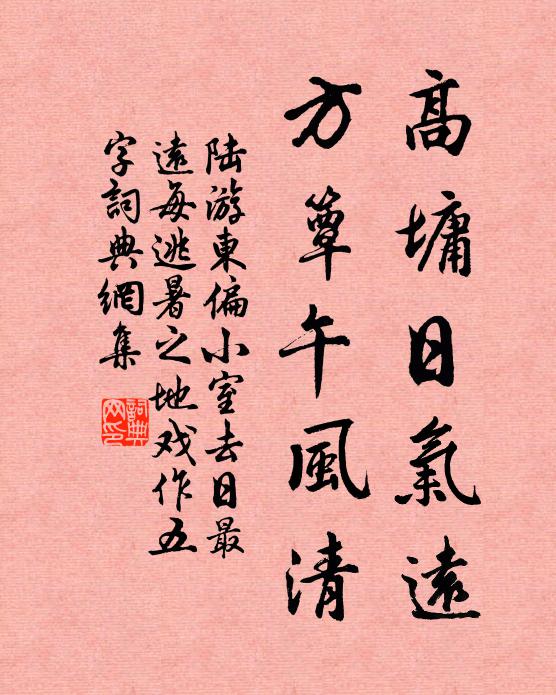 高墉日氣遠
方簟午風清
陆游東偏小室去日最
遠每逃暑之地戏作五
字詞典網集
詞典
网印